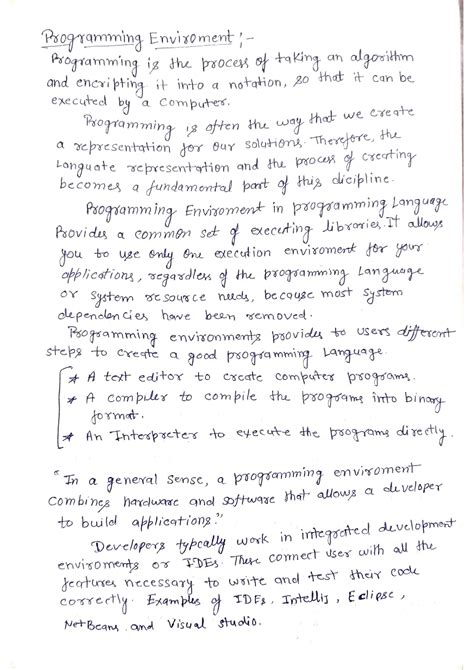 Programming Enviroment ;-
Programming is the process of taking an algorithm
and encripting it into a notation, so that it can be
executed by a computer.
Programming is often the way that we create
a representation for our solutions. Therefore, the
Languate representation and the process of creating
becomes a fundamental part of this dicipline.
Programming Enviroment in programming Language
Provides a common set of executing libraries. It allows
you to use only one execution enviroment for your
applications, regardless of the programming Language
or system resource needs, because most system
dependencies have been removed.
Programming environments provides to users different
steps to create a good programming Language.
* A text editor to create computer programs.
* A compiler to compile the programs into binary
format.
* An Interpreter to execute the programs directly.
"In a general sense, a programming enviroment
combines hardware and software that allows a developer
to build applications."
Developers typically work in integrated development
enviroments or IDEs. These connect user with all the
features necessary to write and test their code
correctly. Examples of IDEs, Intellij, Eclipse,
NetBeans and Visual studio.